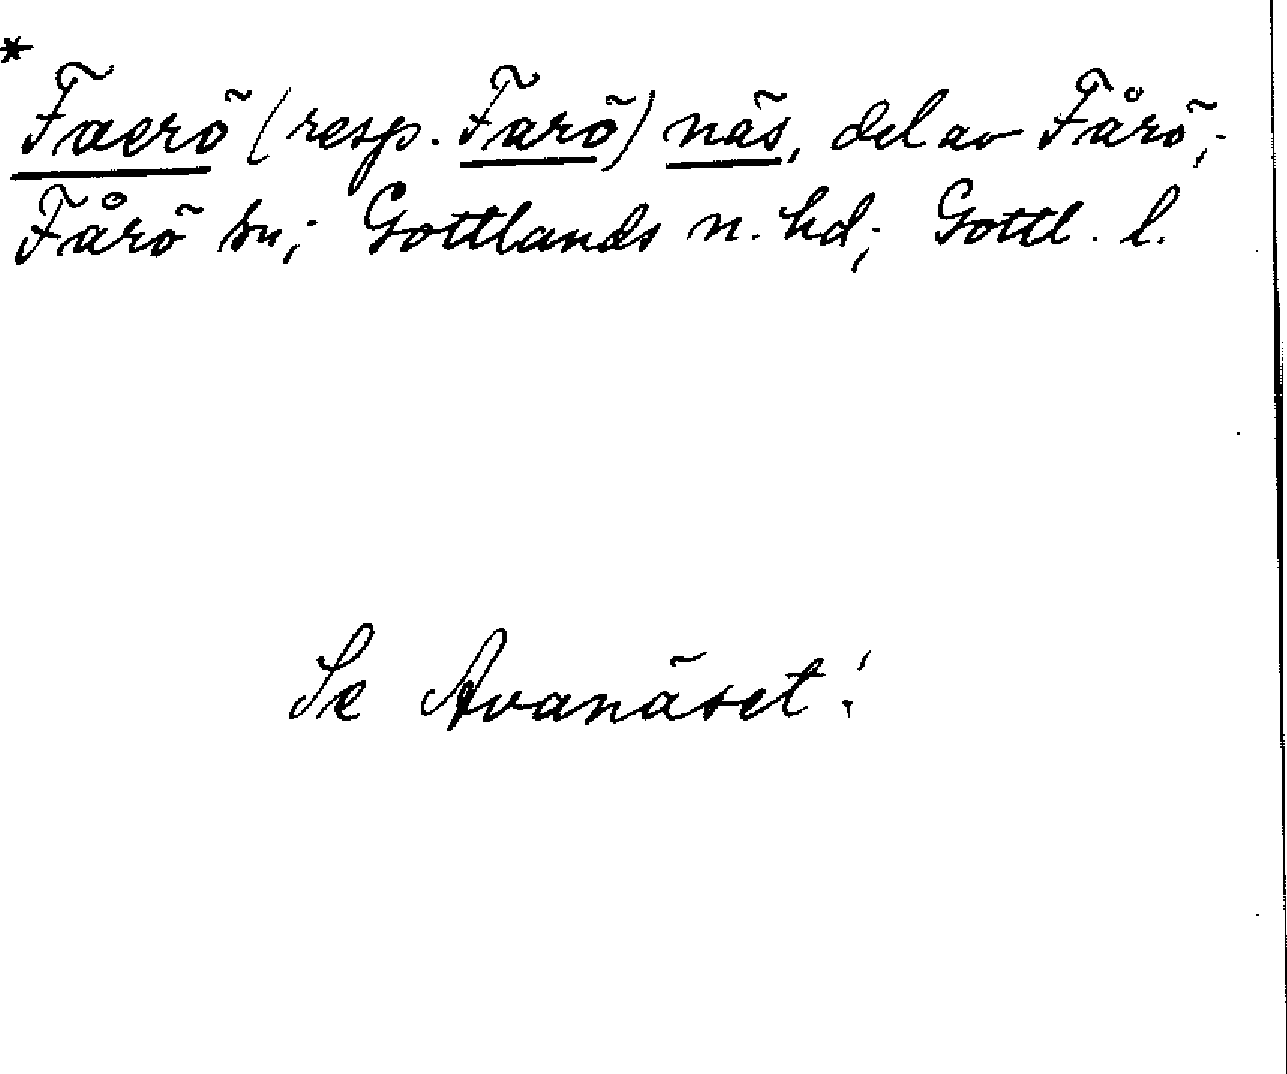 *
Faerö (resp. Farö) näs, del av Fårö;
Fårö sn; Gottlands n. hd; Gottl. l.
Se Avanäset!